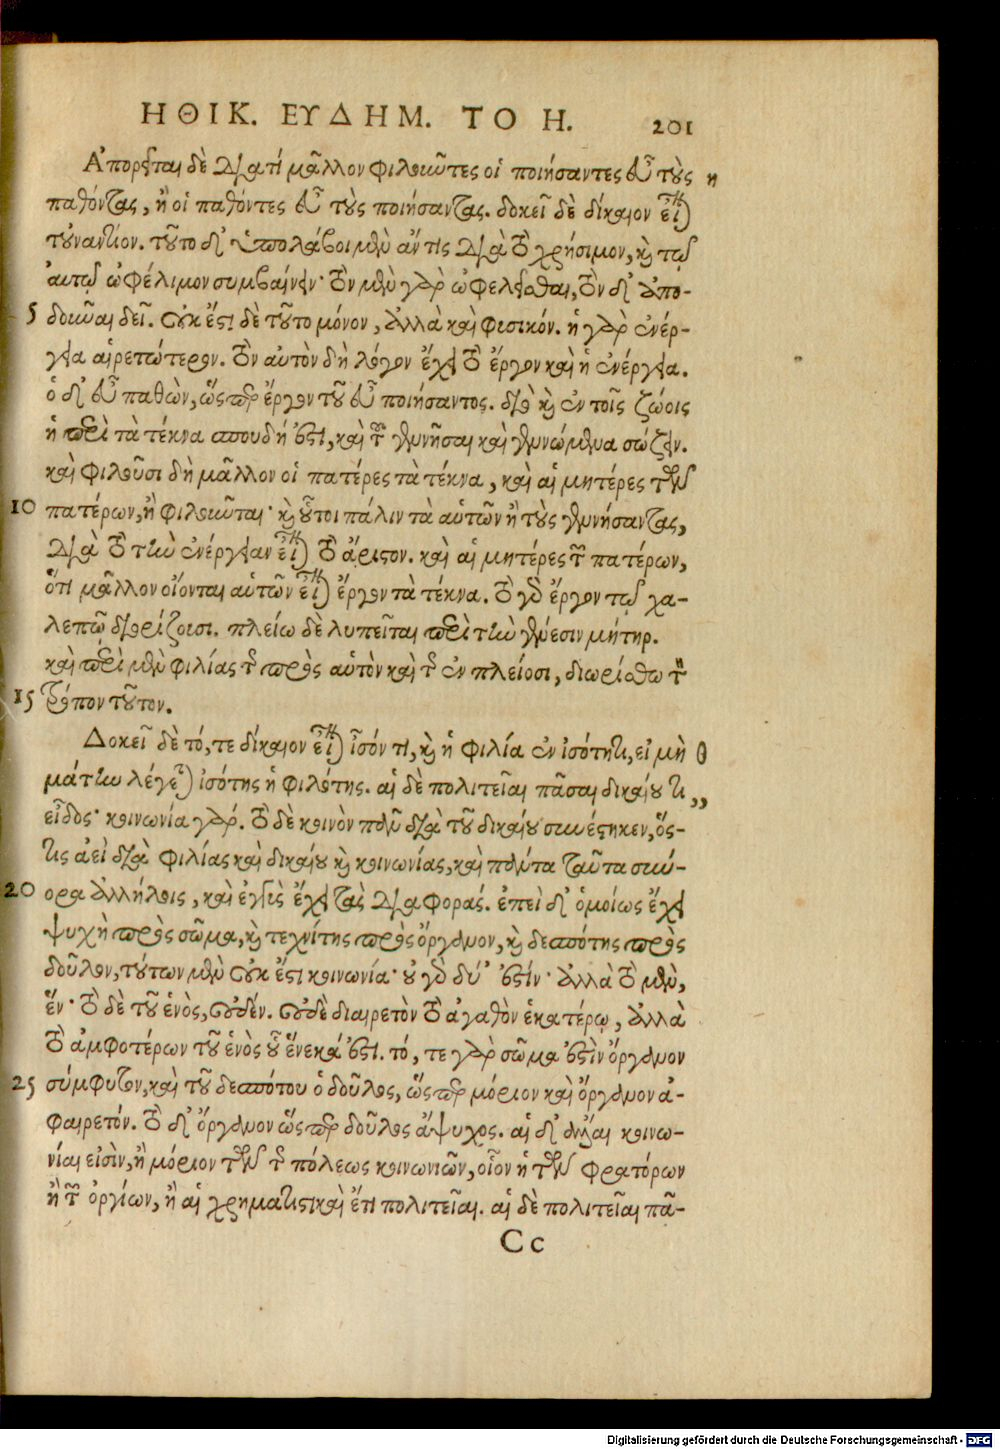 ΗΘΙΚ. ΕΥΔΗΜ. ΤΟ Η. 201
Ἀπορεῖται δὲ διατί μᾶλλον φιλοῦσιν οἱ ποιήσαντες εὖ τοὺς η
παθόντας, ἢ οἱ παθόντες εὖ τοὺς ποιήσαντας. δοκεῖ δὲ δίκαιον εἶναι
τοὐναντίον. τοῦτο δ' ὑπολάβοι μὲν ἄν τις διὰ τὸ χρήσιμον, καὶ τῷ
αὐτῷ ὠφέλιμον συμβαίνειν· τὸν μὲν γὰρ ὠφελεῖσθαι, τὸν δ' ἀπο-
5 δοῦναι δεῖ. οὐκ ἔστι δὲ τοῦτο μόνον, ἀλλὰ καὶ φυσικόν. ἡ γὰρ ἐνέρ-
γεια αἱρετώτερον. τὸν αὐτὸν δὴ λόγον ἔχει τὸ ἔργον καὶ ἡ ἐνέργεια.
ὁ δ' εὖ παθὼν, ὥσπερ ἔργον τοῦ εὖ ποιήσαντος. διὸ καὶ ἐν τοῖς ζώοις
ἡ περὶ τὰ τέκνα σπουδή ἐστι, καὶ τοῦ γεννῆσαι καὶ γεννώμενα σώζειν.
καὶ φιλοῦσι δὴ μᾶλλον οἱ πατέρες τὰ τέκνα, καὶ αἱ μητέρες τῶν
10 πατέρων, ἢ φιλοῦνται· καὶ οὗτοι πάλιν τὰ αὑτῶν ἢ τοὺς γεννήσαντας,
διὰ τὸ τὴν ἐνέργειαν εἶναι τὸ ἄριστον. καὶ αἱ μητέρες τῶν πατέρων,
ὅτι μᾶλλον οἴονται αὑτῶν εἶναι ἔργον τὰ τέκνα. τὸ γὰρ ἔργον τῷ χα-
λεπῷ διορίζουσι. πλείω δὲ λυπεῖται περὶ τὴν γένεσιν μήτηρ.
καὶ περὶ μὲν φιλίας τῆς πρὸς αὑτὸν καὶ τῆς ἐν πλείοσι, διωρίσθω τὸν
15 τρόπον τοῦτον.
Δοκεῖ δὲ τό, τε δίκαιον εἶναι ἶσόν τι, καὶ ἡ φιλία ἐν ἰσότητι, εἰ μὴ θ
μάτην λέγεται ἰσότης ἡ φιλότης. αἱ δὲ πολιτεῖαι πᾶσαι δικαίου τι „
εἶδος· κοινωνία γάρ. τὸ δὲ κοινὸν πᾶν διὰ τοῦ δικαίου συνέστηκεν, ὅς-
τις ἀεὶ διὰ φιλίας καὶ δικαίου καὶ κοινωνίας, καὶ πάντα ταῦτα σύν-
20 ορα ἀλλήλοις, καὶ ἐγγὺς ἔχει τὰς διαφοράς. ἐπεὶ δ' ὁμοίως ἔχει
ψυχὴ πρὸς σῶμα, καὶ τεχνίτης πρὸς ὄργανον, καὶ δεσπότης πρὸς
δοῦλον, τούτων μὲν οὐκ ἔστι κοινωνία· οὐ γὰρ δύ' ἐστίν· ἀλλὰ τὸ μὲν,
ἕν· τὸ δὲ τοῦ ἑνὸς, οὐδέν. οὐδὲ διαιρετὸν τὸ ἀγαθὸν ἑκατέρῳ, ἀλλὰ
τὸ ἀμφοτέρων τοῦ ἑνὸς οὗ ἕνεκά ἐστι. τό, τε γὰρ σῶμα ἐστὶν ὄργανον
25 σύμφυτον, καὶ τοῦ δεσπότου ὁ δοῦλος, ὥσπερ μόριον καὶ ὄργανον ἀ-
φαιρετόν. τὸ δ' ὄργανον ὥσπερ δοῦλος ἄψυχος. αἱ δ' ἄλλαι κοινω-
νίαι εἰσὶν, ἢ μόριον τῶν τῆς πόλεως κοινωνιῶν, οἷον ἡ τῶν φρατόρων
ἢ τῶν ὀργίων, ἢ αἱ χρηματιστικαὶ ἔτι πολιτεῖαι. αἱ δὲ πολιτεῖαι πᾶ-
Cc
Digitalisierung gefördert durch die Deutsche Forschungsgemeinschaft - DFG